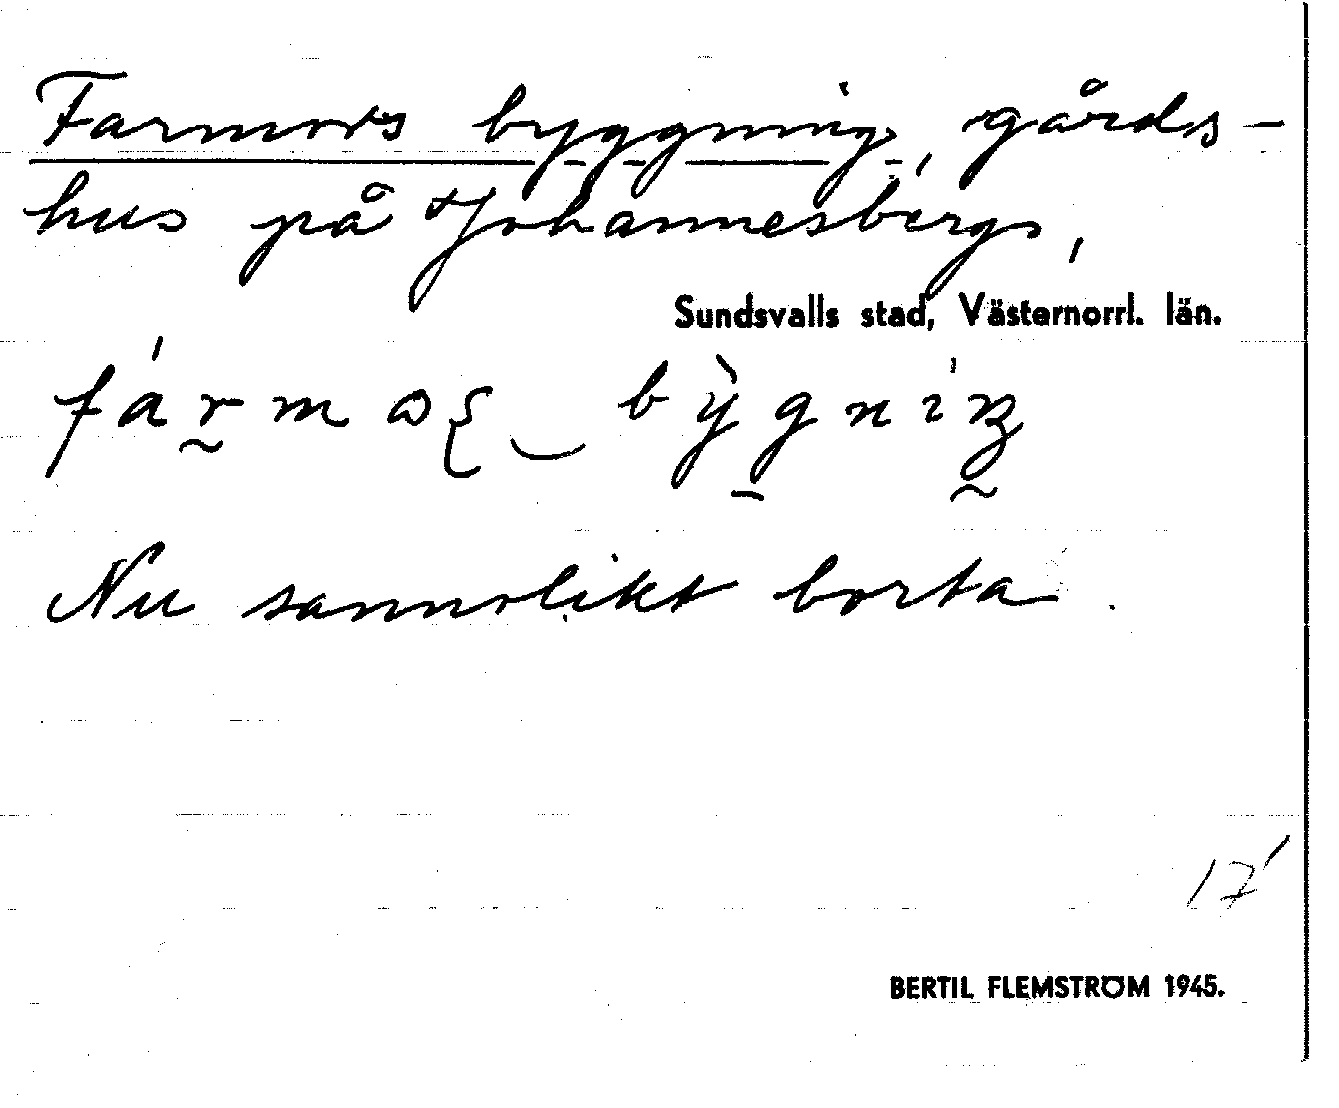 Farmors byggning, gårds-
hus på Johannesbergs,
Sundsvalls stad, Västernorrl. län.
Nu sannolikt borta.
17
BERTIL FLEMSTRÖM 1945.